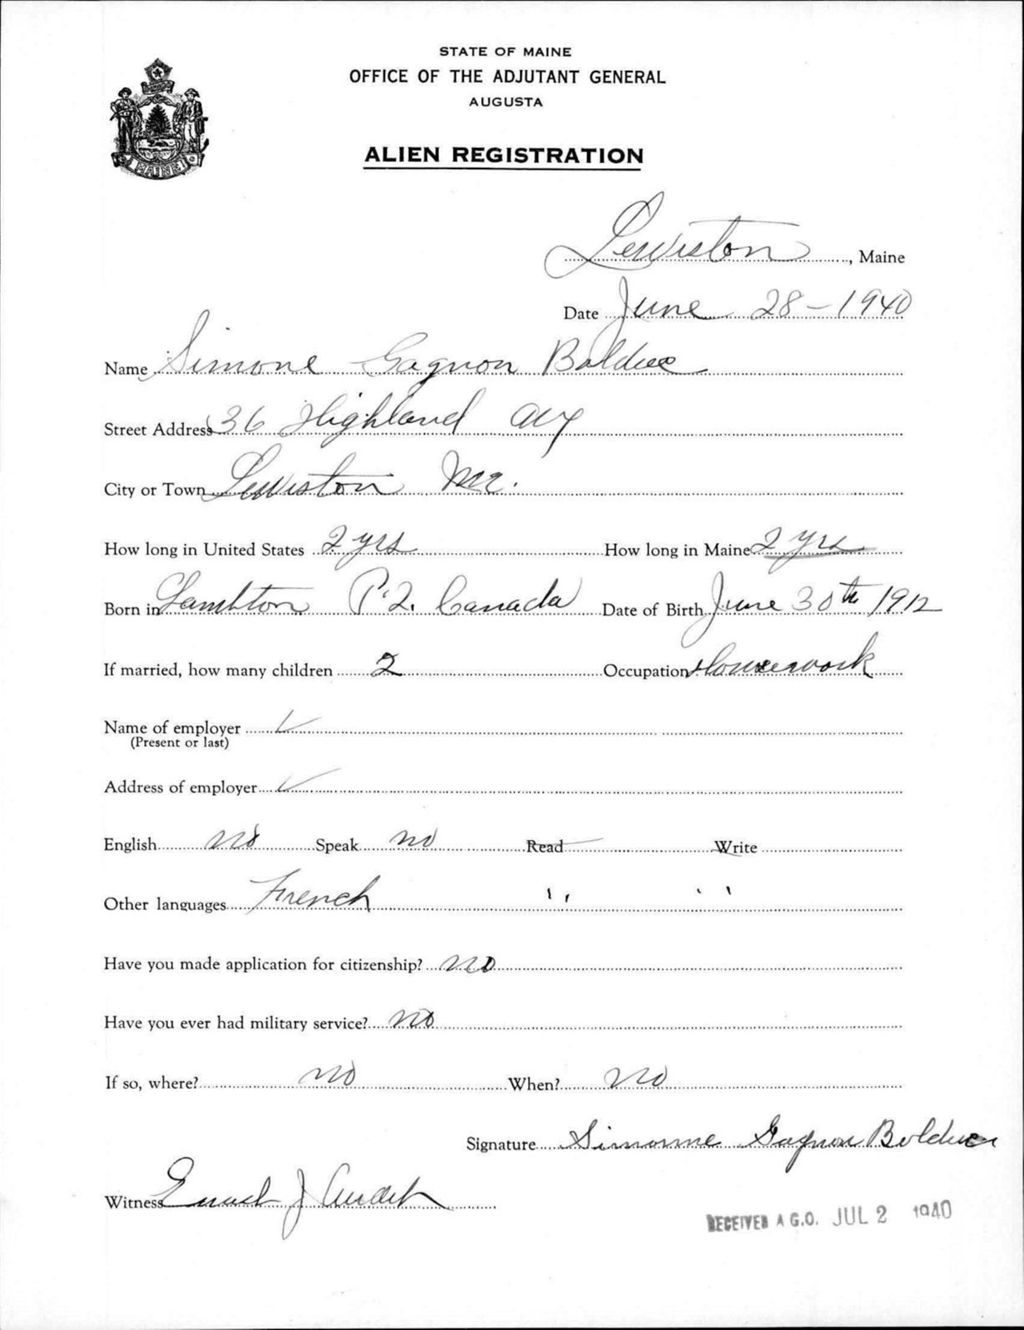 STATE OF MAINE
OFFICE OF THE ADJUTANT GENERAL
AUGUSTA
MAINE
ALIEN REGISTRATION
Lewiston, Maine
Date June 28 - 1940
Name Simone Gagnon Bolduc
Street Address 36 Highland Av
City or Town Lewiston Me.
How long in United States 2 yrs How long in Maine 2 yrs
Born in Lambton P.Q. Canada Date of Birth June 30th 1912
If married, how many children 2 Occupation Housework
Name of employer ✓
(Present or last)
Address of employer ✓
English no Speak no Read Write
Other languages French " "
Have you made application for citizenship? no
Have you ever had military service? no
If so, where? no When? no
Signature Simonne Gagnon Bolduc
Witness J
RECEIVED A G.O. JUL 2 1940